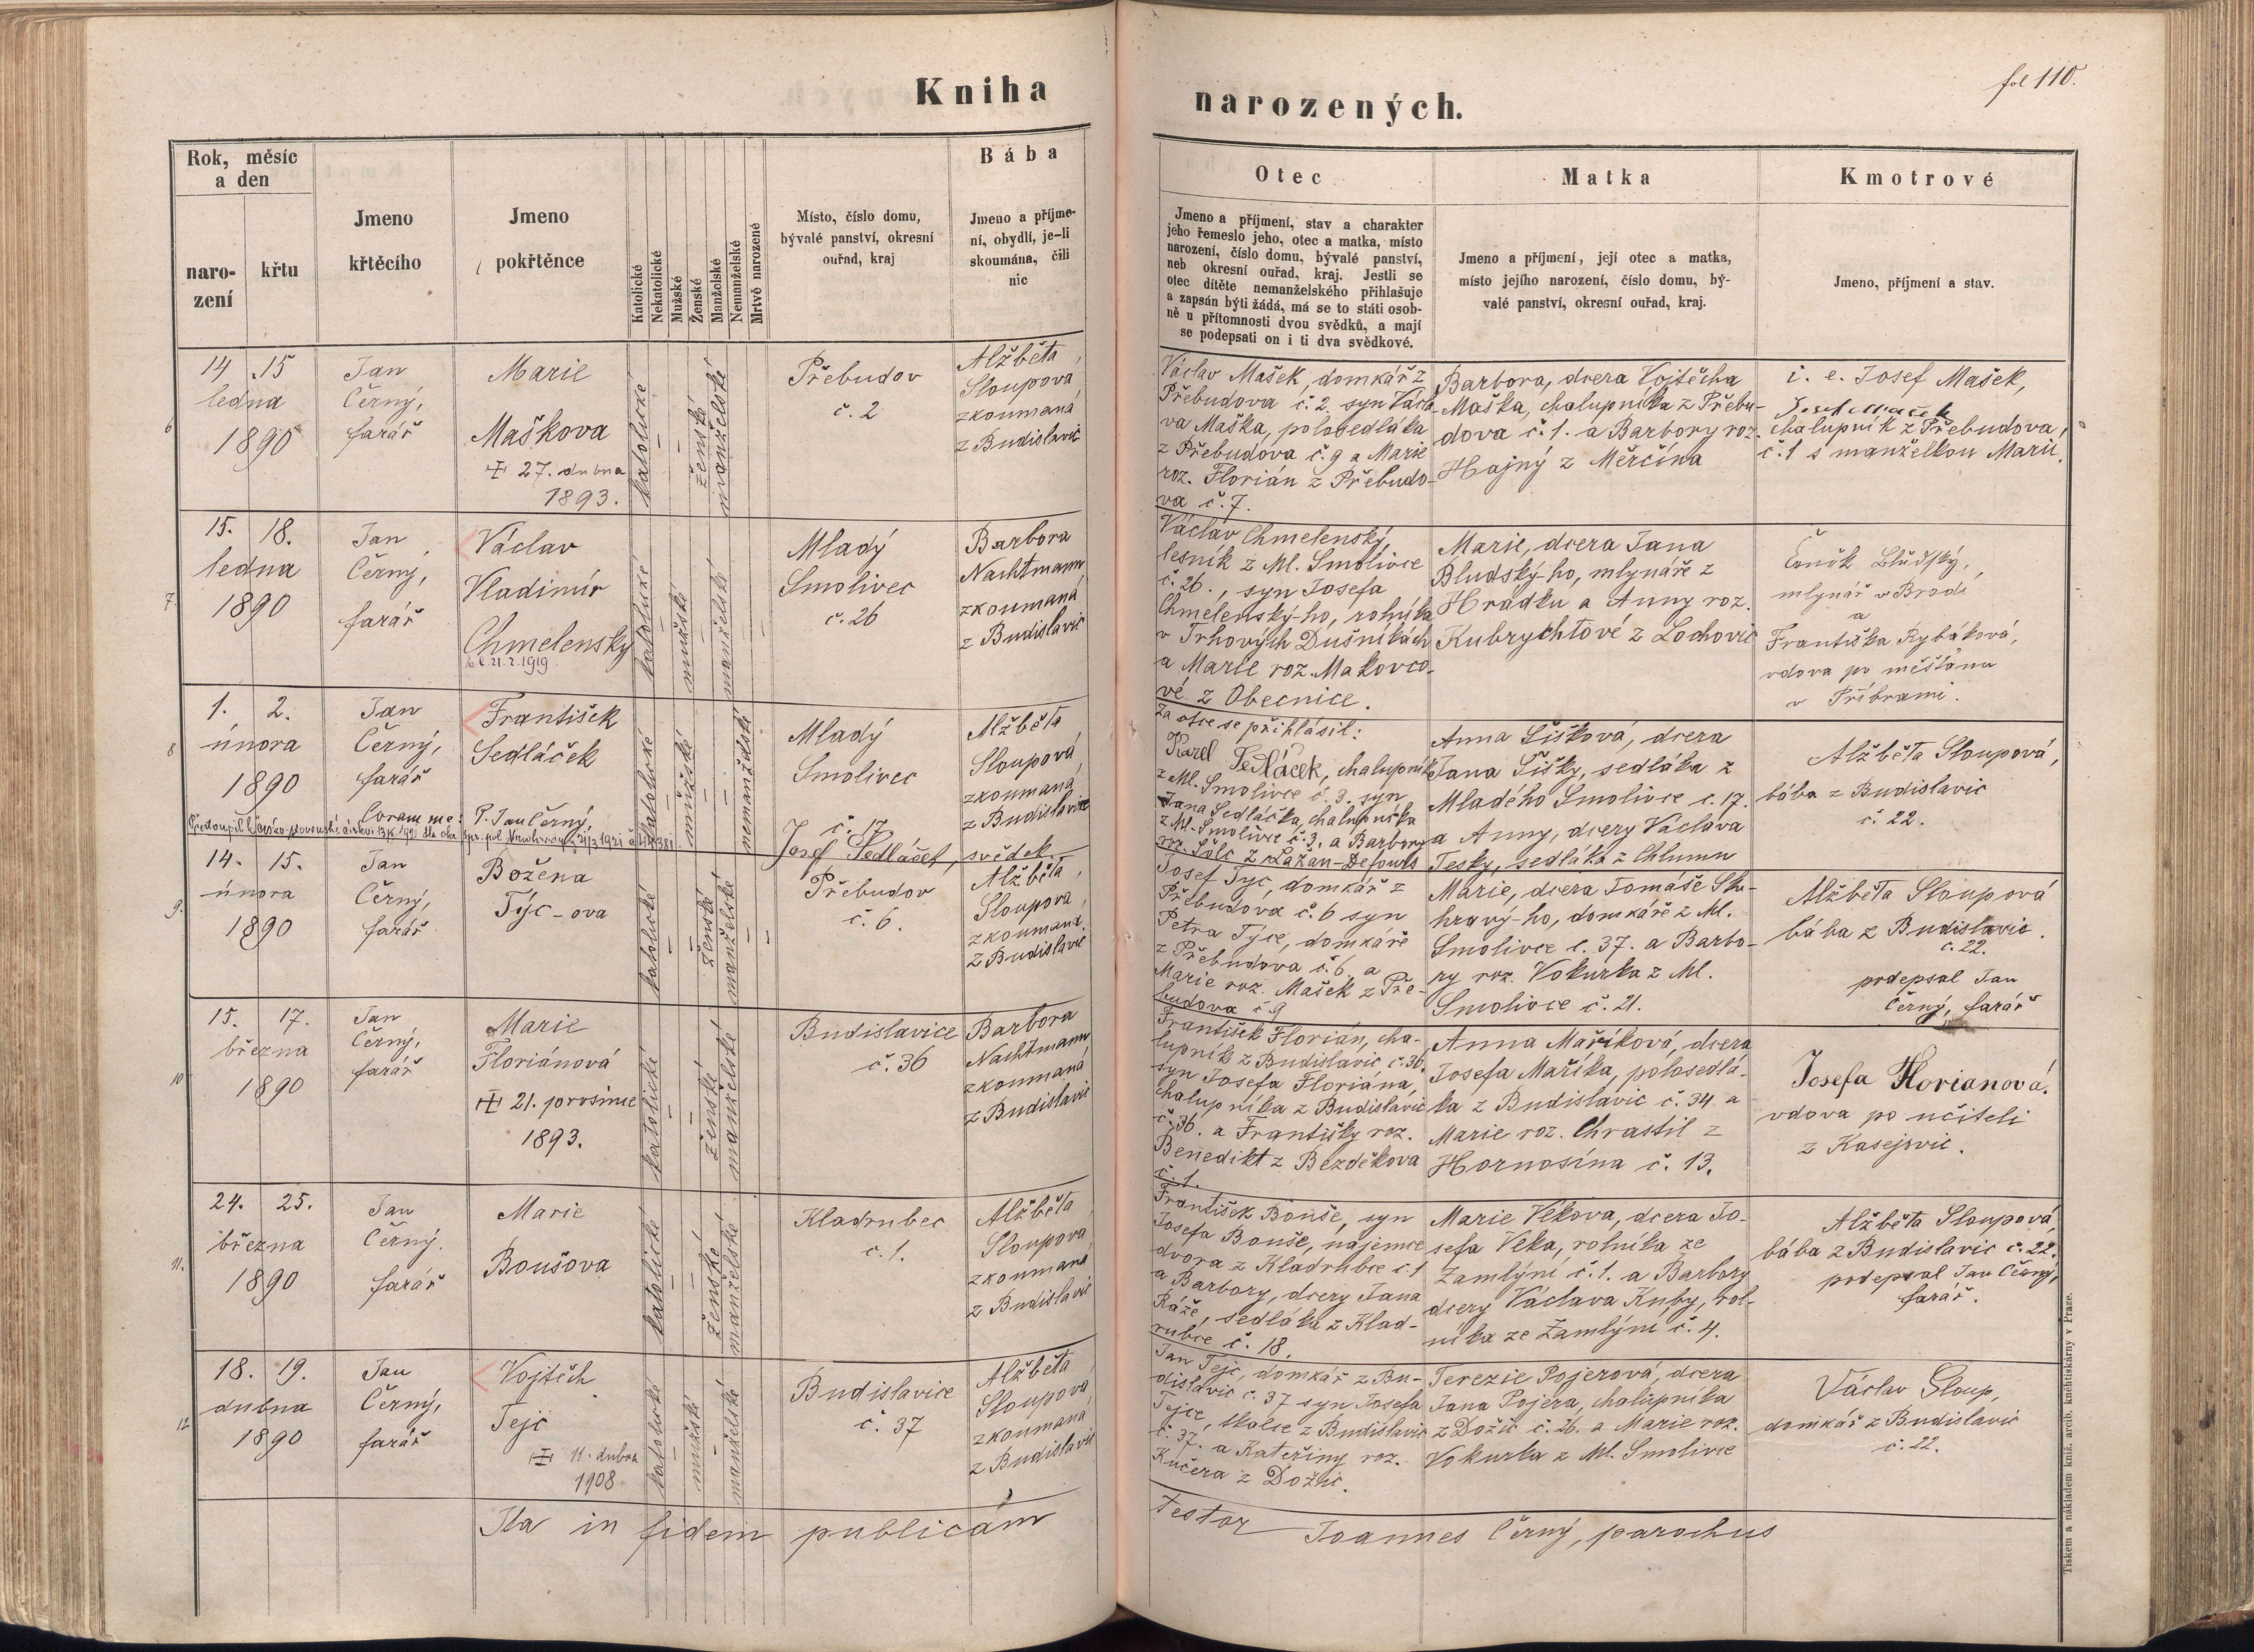 Kniha
narozených.
fol 110.
Rok, měsíc
a den
naro-
zení
křtu
Jmeno
křtěcího
Jmeno
pokřtěnce
Katolické
Nekatolické
Mužské
Ženské
Manželské
Nemanželské
Mrtvě narozené
Místo, číslo domu,
bývalé panství, okresní
ouřad, kraj
Bába
Jmeno a příjme-
ní, obydlí, je-li
skoumána, čili
nic
Otec
Jmeno a příjmení, stav a charakter
jeho řemeslo jeho, otec a matka, místo
narození, číslo domu, bývalé panství,
neb okresní ouřad, kraj. Jestli se
otec dítěte nemanželského přihlašuje
a zapsán býti žádá, má se to státi osob-
ně u přítomnosti dvou svědků, a mají
se podepsati on i ti dva svědkové.
Matka
Jmeno a příjmení, její otec a matka,
místo jejího narození, číslo domu, bý-
valé panství, okresní ouřad, kraj.
Kmotrové
Jmeno, příjmení a stav.
6
14 15
ledna
1890
Jan
Černý,
farář
Marie
Maškova
27. dubna
1893.
katolické
ženské
manželské
Přebudov
č. 2
Alžběta
Sloupova,
zkoumaná
z Budislavic
Václav Mašek, domkář z
Přebudova č. 2. syn Václa-
va Maška, polosedláka
z Přebudova č. 9 a Marie
roz. Florián z Přebudo-
va č. 7.
Barbora, dcera Vojtěcha
Maška, chalupníka z Přebu-
dova č. 1. a Barbory roz.
Hajný z Měrčína
i. e. Josef Mašek,
Josef Mašek
chalupník z Přebudova,
č. 1 s manželkou Marií.
7
15. 18.
ledna
1890
Jan
Černý,
farář
Václav
Vladimír
Chmelensky
21. 2. 1919
katolické
mužské
manželské
Mladý
Smolivec
č. 26
Barbora
Nachtmann
zkoumaná
z Budislavic
Václav Chmelenský,
lesník z Ml. Smolivce
č. 26., syn Josefa
Chmelenský-ho, rolníka
v Trhových Dušníkách
a Marie roz. Makovco-
vé z Obecnice.
Marie, dcera Jana
Bludský-ho, mlynáře z
Hrádku a Anny roz.
Kubrychtové z Lochovic
Čeněk Bludský,
mlynář v Brodě
a
Františka Rybáková,
vdova po měšťanu
v Příbrami.
8
1. 2.
února
1890
Jan
Černý,
farář
František
Sedláček
Coram me: P. Jan Černý,
katolické
mužské
nemanželské
Mladý
Smolivec
č. 17
Josef Sedláček, svědek
Alžběta
Sloupová,
zkoumaná
z Budislavic
Za otce se přihlásil:
Karel Sedláček, chalupník
z Ml. Smolivce č. 3. syn
Jana Sedláčka, chalupníka
z Ml. Smolivce č. 3. a Barbory
roz. Šolc z Lažan-Defours
Anna Šišková, dcera
Jana Šišky, sedláka z
Mladého Smolivce č. 17.
a Anny, dcery Václava
Tesky, sedláka z Chlumu
Alžběta Sloupová,
bába z Budislavic
č. 22.
9.
14. 15.
února
1890
Jan
Černý,
farář
Božena
Týc-ova
katolické
ženské
manželské
Přebudov
č. 6.
Alžběta
Sloupova,
zkoumaná
z Budislavic
Josef Týc, domkář z
Přebudova č. 6 syn
Petra Týce, domkáře
z Přebudova č. 6. a
Marie roz. Mašek z Pře-
budova č. 9
Marie, dcera Tomáše Sku-
hravý-ho, domkáře z Ml.
Smolivce č. 37. a Barbo-
ry roz. Vokurka z Ml.
Smolivce č. 21.
Alžběta Sloupová
bába z Budislavic.
č. 22.
podepsal Jan
Černý, farář
10
15. 17.
března
1890
Jan
Černý,
farář
Marie
Floriánová
21. prosince
1893.
katolické
ženské
manželské
Budislavice
č. 36
Barbora
Nachtmann
zkoumaná
z Budislavic
František Florián, cha-
lupník z Budislavic č. 36,
syn Josefa Floriána,
chalupníka z Budislavic
č. 36. a Františky roz.
Benedikt z Bezděkova
č. 1.
Anna Maříková, dcera
Josefa Maříka, polosedlá-
ka z Budislavic č. 34. a
Marie roz. Chrastil z
Hornosína č. 13.
Josefa Florianová.
vdova po učiteli
z Kasejovic.
11.
24. 25.
března
1890
Jan
Černý.
farář
Marie
Boušova
katolické
ženské
manželské
Kladrubec
č. 1.
Alžběta
Sloupova,
zkoumaná
z Budislavic
František Bouše, syn
Josefa Bouše, nájemce
dvora z Kladrubce č. 1
a Barbory, dcery Jana
Ráže, sedláka z Klad-
rubce č. 18.
Marie Vékova, dcera Jo-
sefa Veka, rolníka ze
Zamlýní č. 1. a Barbory
dcery Václava Kuby, rol-
níka ze Zamlýní č. 4.
Alžběta Sloupová,
bába z Budislavic č. 22.
podepsal Jan Černý,
farář.
12
18. 19.
dubna
1890
Jan
Černý,
farář
Vojtěch
Tejc
11. dubna
1908
katolické
mužské
manželské
Budislavice
č. 37
Alžběta
Sloupova,
zkoumaná
z Budislavic
Jan Tejc, domkář z Bu-
dislavic č. 37 syn Josefa
Tejce, tkalce z Budislavic
č. 37. a Kateřiny roz.
Kučera z Dožic.
Terezie Pojerová, dcera
Jana Pojera, chalupníka
z Dožic č. 26. a Marie roz.
Vokurka z Ml. Smolivce
Václav Sloup,
domkář z Budislavic
č. 22.
Ita in fidem publicam
testor Joannes Černý, parochus
Tiskem a nákladem kníž. arcib. knehtiskárny v Praze.